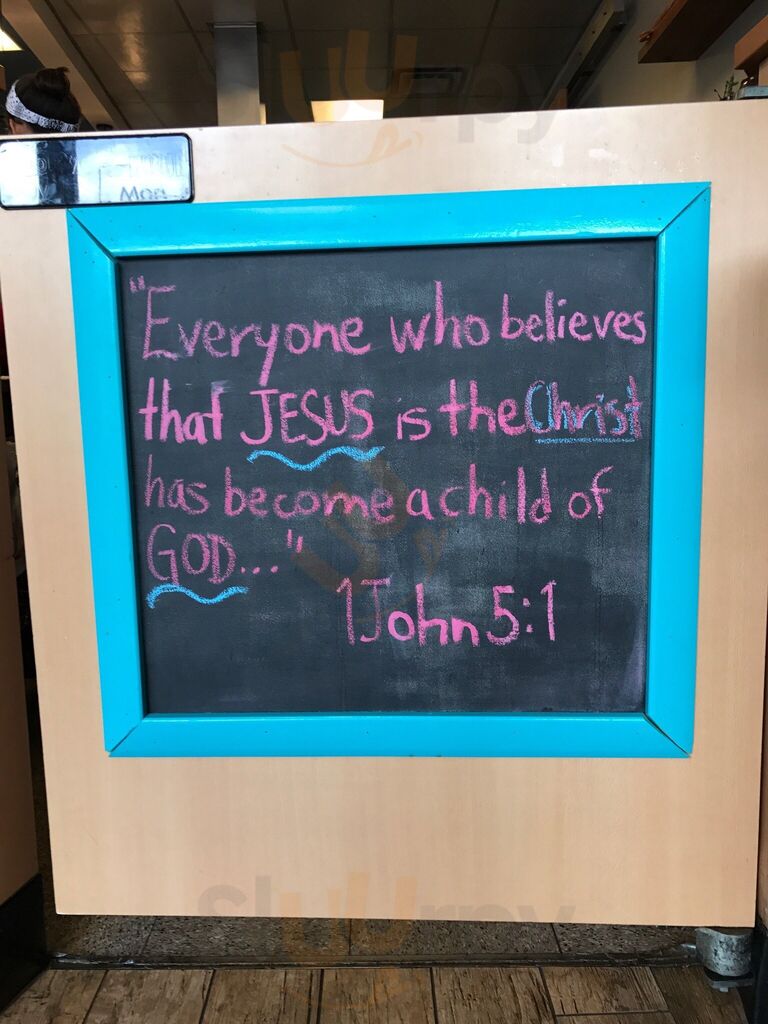 Mon
"Everyone who believes
that JESUS is the Christ
has become a child of
GOD..."
1John 5:1
Sluurpy
Sluurpy